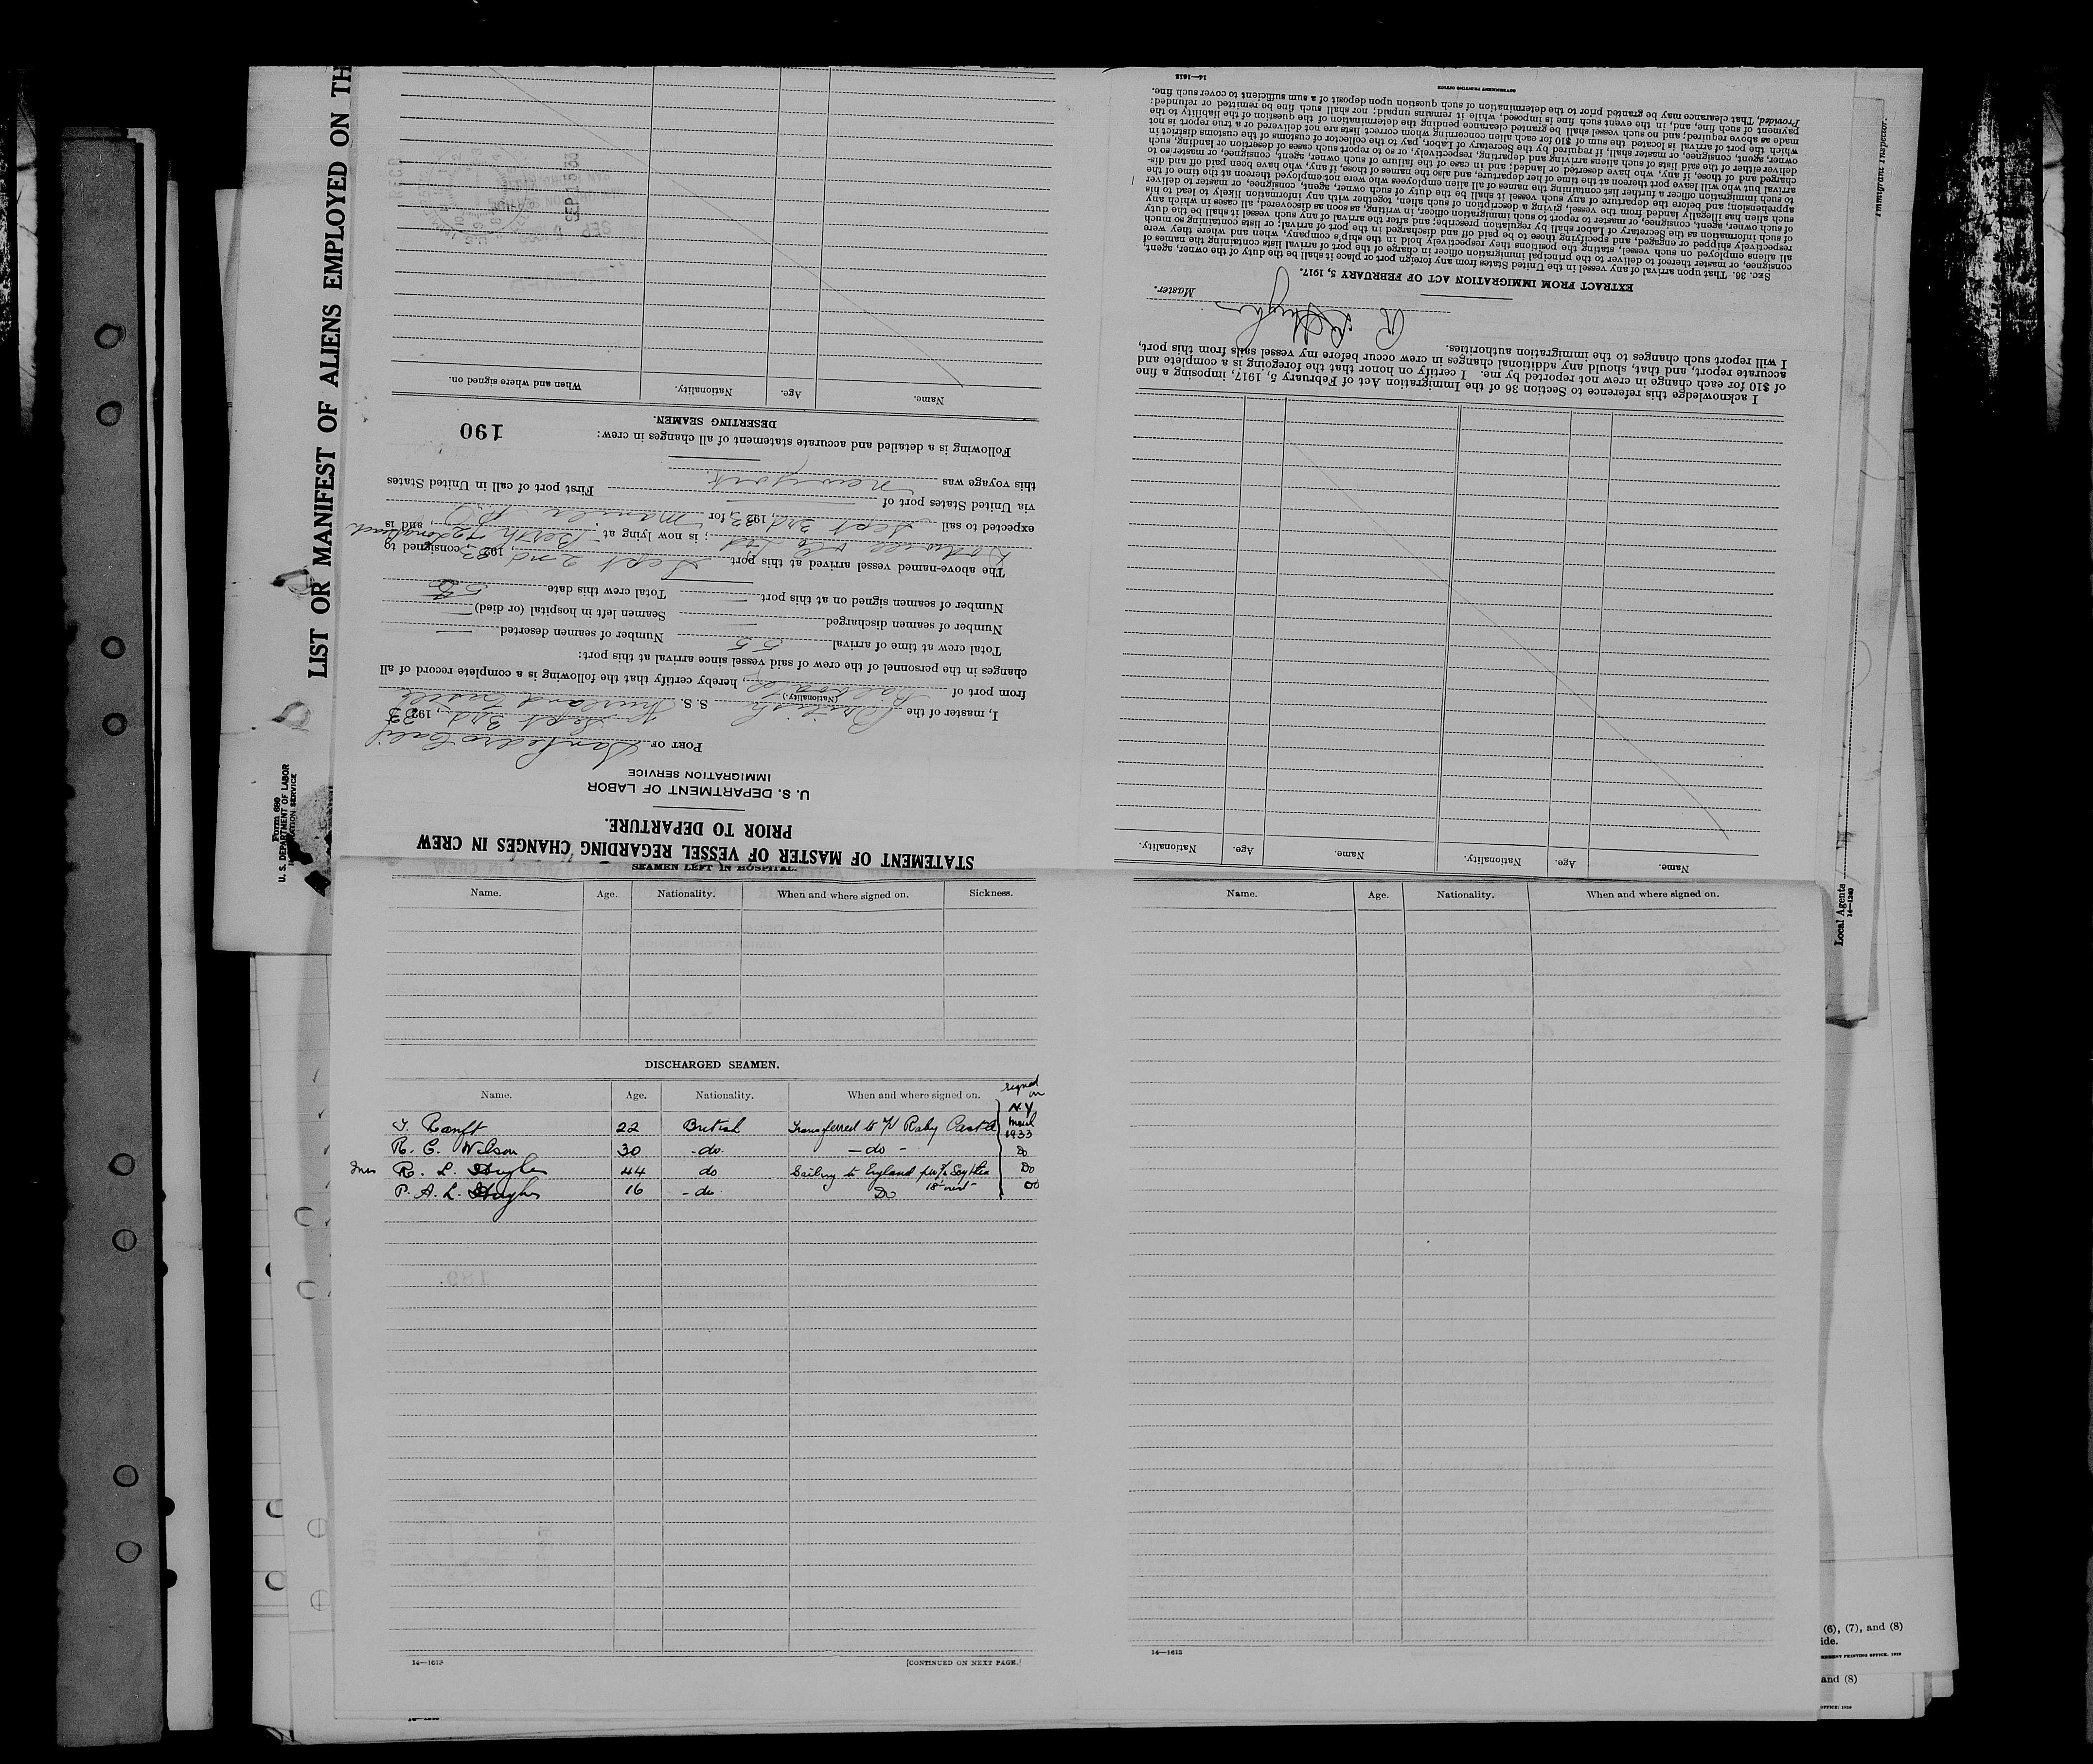 LIST OR MANIFEST OF ALIENS EMPLOYED ON TH
Form 680
U. S. DEPARTMENT OF LABOR
IMMIGRATION SERVICE
STATEMENT OF MASTER OF VESSEL REGARDING CHANGES IN CREW
PRIOR TO DEPARTURE.
U. S. DEPARTMENT OF LABOR
IMMIGRATION SERVICE
PORT OF San Pedro Calif
Sept 3rd, 1933
I, master of the British S. S. Thurland Castle
(Nationality.)
from port of Balboa, hereby certify that the following is a complete record of all
changes in the personnel of the crew of said vessel since arrival at this port:
Total crew at time of arrival 55 Number of seamen deserted —
Number of seamen discharged — Seamen left in hospital (or died) —
Number of seamen signed on at this port — Total crew this date 55
The above-named vessel arrived at this port Sept 2nd, 1933, consigned to
Dodwell Co Ltd; is now lying at Berth, and is
expected to sail Sept 3rd, 1933, for Manila P.I.
via United States port of — First port of call in United States
this voyage was New York
Following is a detailed and accurate statement of all changes in crew:
190
DESERTING SEAMEN.
Name. Age. Nationality. When and where signed on.
SEP 1 1933
Name. Age. Nationality. Name. Age. Nationality.
I acknowledge this reference to Section 36 of the Immigration Act of February 5, 1917, imposing a fine
of $10 for each change in crew not reported by me. I certify on honor that the foregoing is a complete and
accurate report, and that, should any additional changes in crew occur before my vessel sails from this port,
I will report such changes to the immigration authorities.
Master.
EXTRACT FROM IMMIGRATION ACT OF FEBRUARY 5, 1917.
SEC. 36. That upon arrival of any vessel in the United States from any foreign port or place it shall be the duty of the owner, agent,
consignee, or master thereof to deliver to the principal immigration officer in charge of the port of arrival lists containing the names of
all aliens employed on such vessel, stating the positions they respectively hold in the ship's company, when and where they were
respectively shipped or engaged, and specifying those to be paid off and discharged in the port of arrival; or lists containing so much
of such information as the Secretary of Labor shall by regulation prescribe; and after the arrival of any such vessel it shall be the duty
of such owner, agent, consignee, or master to report to such immigration officer, in writing, as soon as discovered, all cases in which any
such alien has illegally landed from the vessel, giving a description of such alien, together with any information likely to lead to his
apprehension; and before the departure of any such vessel it shall be the duty of such owner, agent, consignee, or master to deliver
to such immigration officer a further list containing the names of all alien employees who were not employed thereon at the time of the
arrival but who will leave port thereon at the time of her departure, and also the names of those, if any, who have been paid off and dis-
charged and of those, if any, who have deserted or landed; and in case of the failure of such owner, agent, consignee, or master so to
deliver either of the said lists of such aliens arriving and departing, respectively, or so to report such cases of desertion or landing, such
owner, agent, consignee, or master shall, if required by the Secretary of Labor, pay to the collector of customs of the customs district in
which the port of arrival is located the sum of $10 for each alien concerning whom correct lists are not delivered or a true report is not
made as above required; and no such vessel shall be granted clearance pending the determination of the question of the liability to the
payment of such fine, and, in the event such fine is imposed, while it remains unpaid; nor shall such fine be remitted or refunded:
Provided, That clearance may be granted prior to the determination of such question upon deposit of a sum sufficient to cover such fine.
GOVERNMENT PRINTING OFFICE
14—1613
Immigrant Inspector.
Local Agents
14—1240
SEAMEN LEFT IN HOSPITAL.
Name. Age. Nationality. When and where signed on. Sickness.
DISCHARGED SEAMEN.
Name. Age. Nationality. When and where signed on. signed on
N.Y
22 British Transferred to Raby Castle March 1933
R. C. Wilson 30 - do - — do — Do
Mrs R. L. Hughes 44 do Sailing to England Scythia Do
P. A. L. Hughes 16 - do Do 18 inst Do
14—1613
[CONTINUED ON NEXT PAGE.]
Name. Age. Nationality. When and where signed on.
14—1613
(6), (7), and (8)
ide.
and (8)